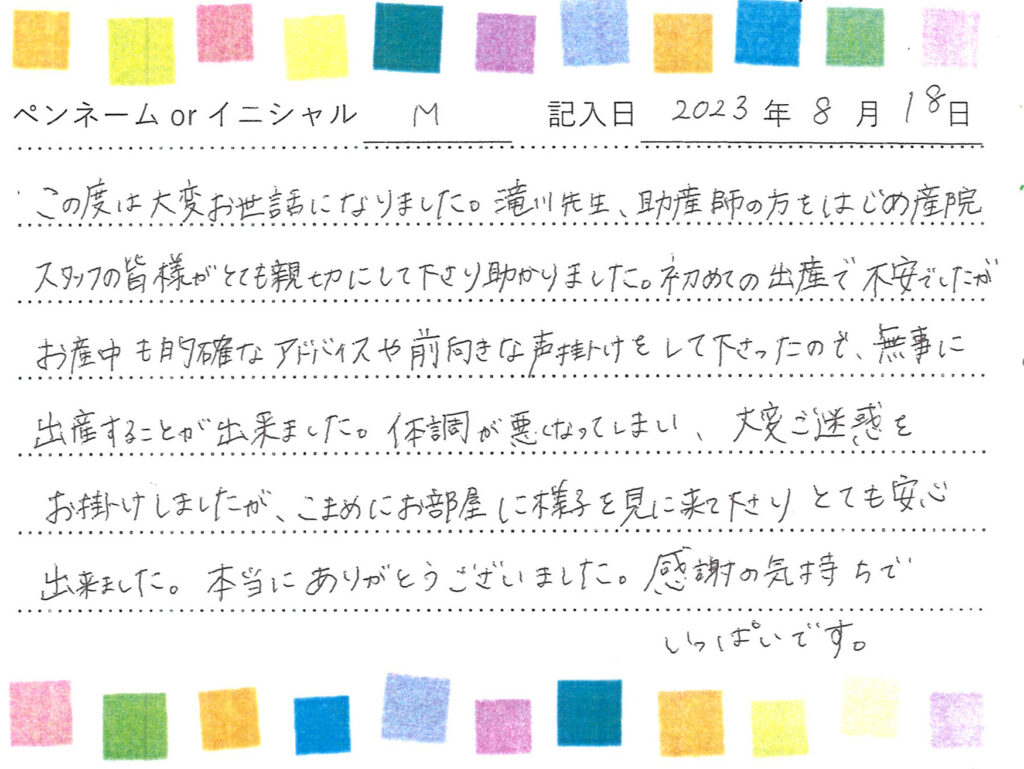 ペンネーム or イニシャル M 記入日 2023 年 8 月 18 日
この度は大変お世話になりました。滝川先生、助産師の方をはじめ産院
スタッフの皆様がとても親切にして下さり助かりました。初めての出産で不安でしたが
お産中も的確なアドバイスや前向きな声掛けをして下さったので、無事に
出産することが出来ました。体調が悪くなってしまい、大変ご迷惑を
お掛けしましたが、こまめにお部屋に様子を見に来て下さりとても安心
出来ました。本当にありがとうございました。感謝の気持ちで
いっぱいです。